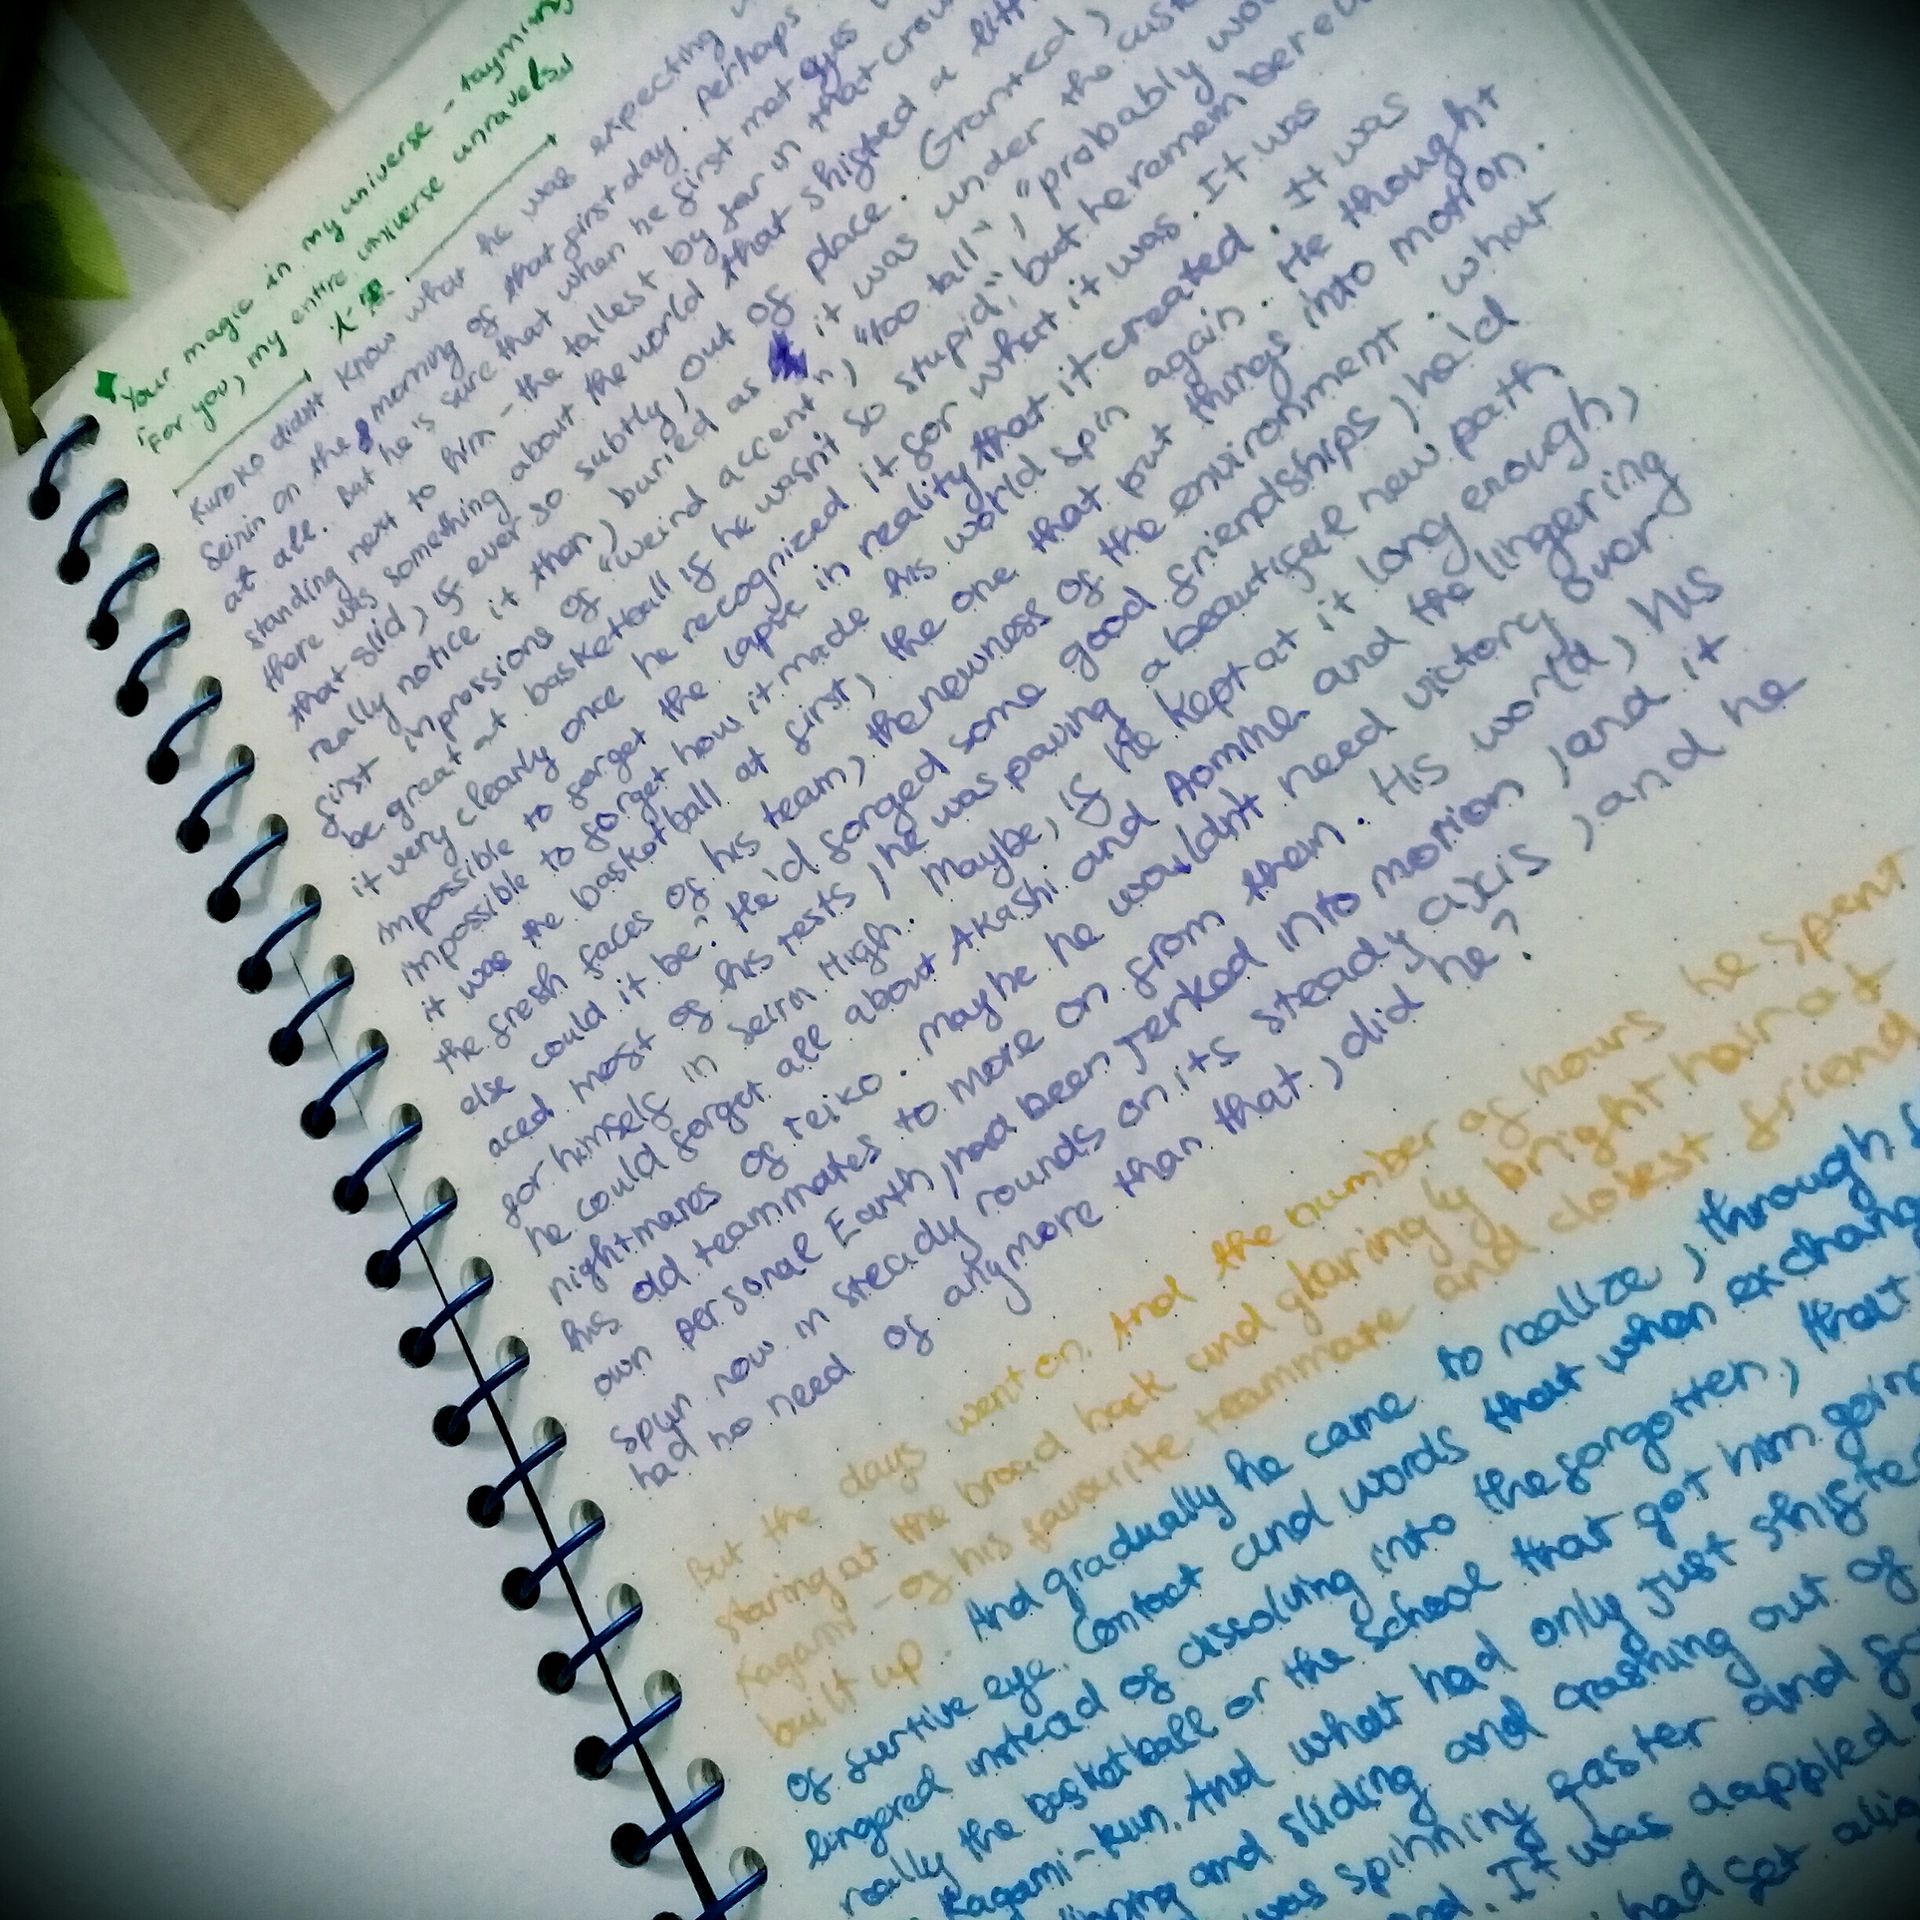 Your magic in my universe - tayming
"For you, my entire universe unravels"
Kuroko didn't know what he was expecting
Seirin on the morning of that first day. Perhaps
at all. But he's sure that when he first met eyes
standing next to him - the tallest by far in that crow
there was something about the world that shifted a litt
that slid, if ever so subtly, out of place. Granted,
really notice it then, buried as it was under the cust
first impressions of "weird accent", "too tall", "probably wou
be great at basketball if he wasn't so stupid", but he remembered
it very clearly once he recognized it for what it was. It was
impossible to forget the lapse in reality that it created. It was
impossible to forget how it made his world spin again. He thought
it was the basketball at first, the one that put things into motion.
the fresh faces of his team, the newness of the environment. what
else could it be? He'd forged some good friendships, he'd
aced most of his tests, he was paving a beautiful new path
for himself in Seirin High. Maybe, if he kept at it long enough,
he could forget all about Akashi and Aomine and the lingering
nightmares of Teiko. Maybe he wouldn't need victory over
his old teammates to more on from them. His world, his
own personal Earth, had been jerked into motion, and it
spun now in steady rounds on its steady axis, and he
had no need of anymore than that, did he?
But the days went on. And the number of hours he spent
staring at the broad back and glaringly bright hair of
Kagami - of his favourite teammate and closest friend
built up. And gradually he came to realize, through
of furtive eye contact and words that when exchang
lingered instead of dissolving into the forgotten, that
really the basketball or the school that got him going
Kagami-kun. And what had only just shifted
and sliding and crashing out of
was spinning faster and
It was dappled
had set